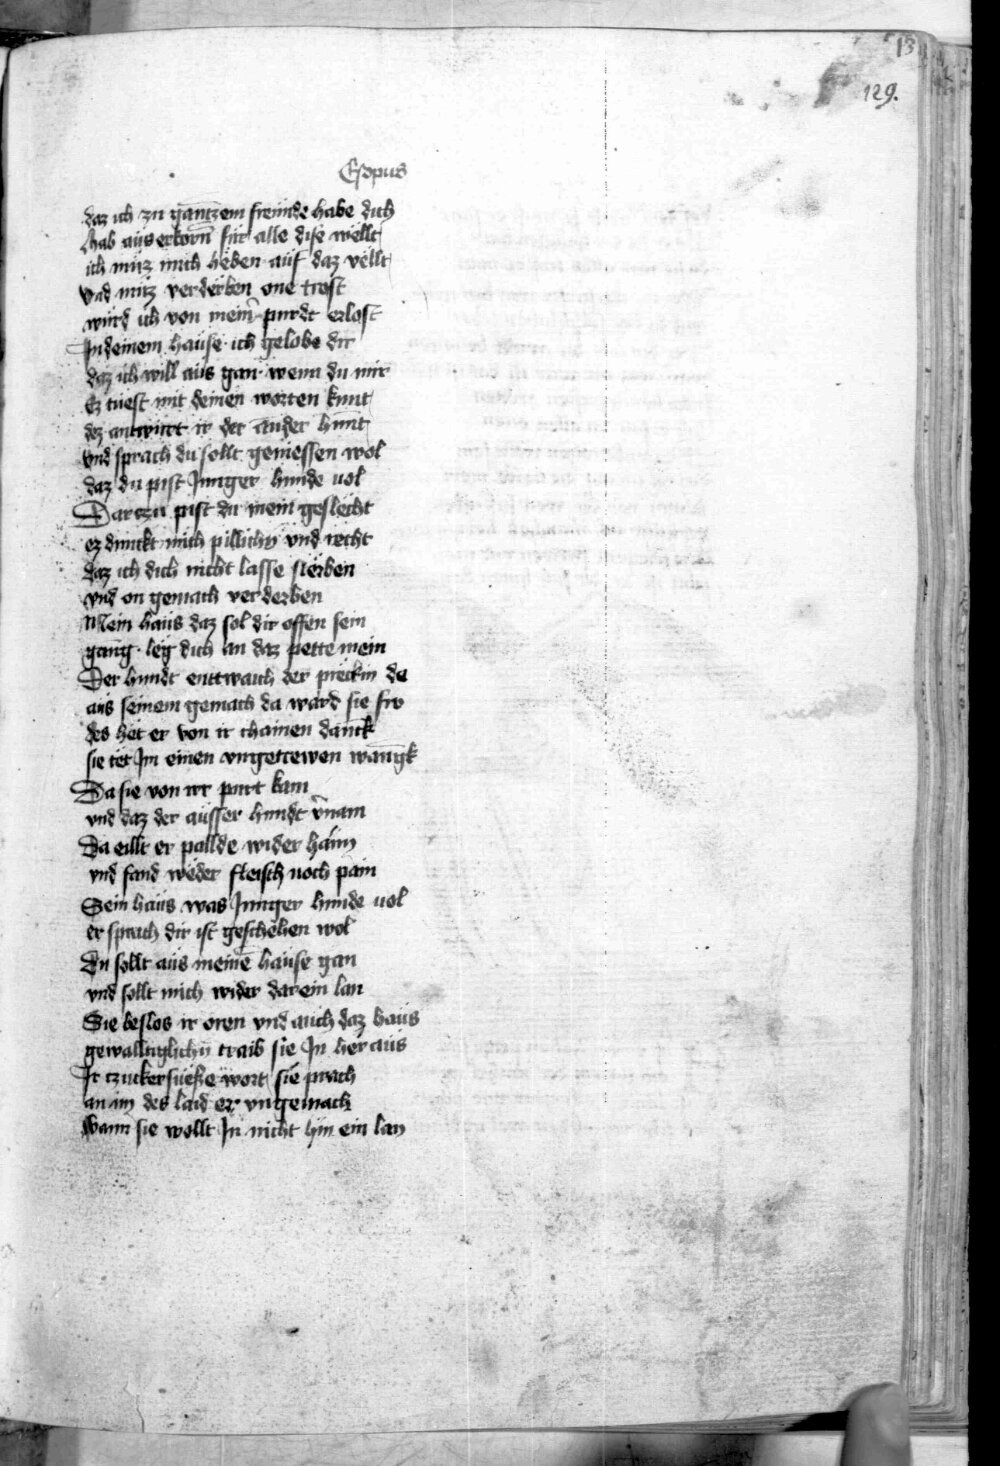 13
129.
Esopus
daz ich zu gantzem freunde habe dich
hab auserkorn für alle dise wellt
ich müz mich heben auf daz vellt
vnd müz verderben one trost
würd ich von meīr purdt erlost
In deinem hause ich gelobe dir
daz ich will aus gan wenn du mir
Ez tuest mit deinen worten kunt
dez antwurt ir der ander hunt
vnd sprach du sollt geniessen wol
daz du pist Junger hunde vol
Darczu pist du mein geslecht
ez dunckt mich pillichn vnd recht
daz ich dich nicht lasse sterben
vnd on gemach verderben
Mein haus daz sol dir offen sein
gang leg dich an daz pette mein
Der hundt enttwaich der preckin da
aus seinem gemach da ward sie fro
des het er von ir chainen danck
sie tet Im einen vngetrewen wangk
Da sie von irr purt kam
vnd daz der ausser hundt v̄nam
Da eillt er pallde wider haim
vnd fand weder fleisch noch pain
Sein haus was Junger hunde vol
er sprach dir ist geschehen wol
Du sollt aus meinē hause gan
vnd sollt mich wider darein lan
Sie beslos ir oren vnd auch daz haus
gewalltiglichn traib sie In heraus
Ir czuckersueße wort sie prach
an im des laid er vngemach
Wann sie wollt In nicht hin ein lan